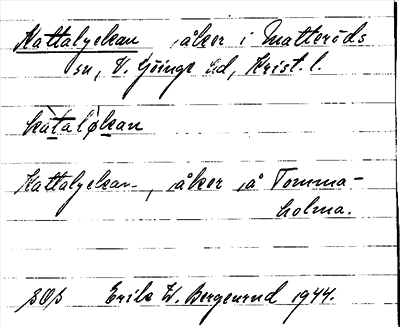 Kattalyckan, åker i Matteröds
sn, V. Göinge hd, Krist. l.
kàtaløkan
Kattalyckan, åker på Tomma-
holma.
SOS Erik W. Bergenrud 1944.